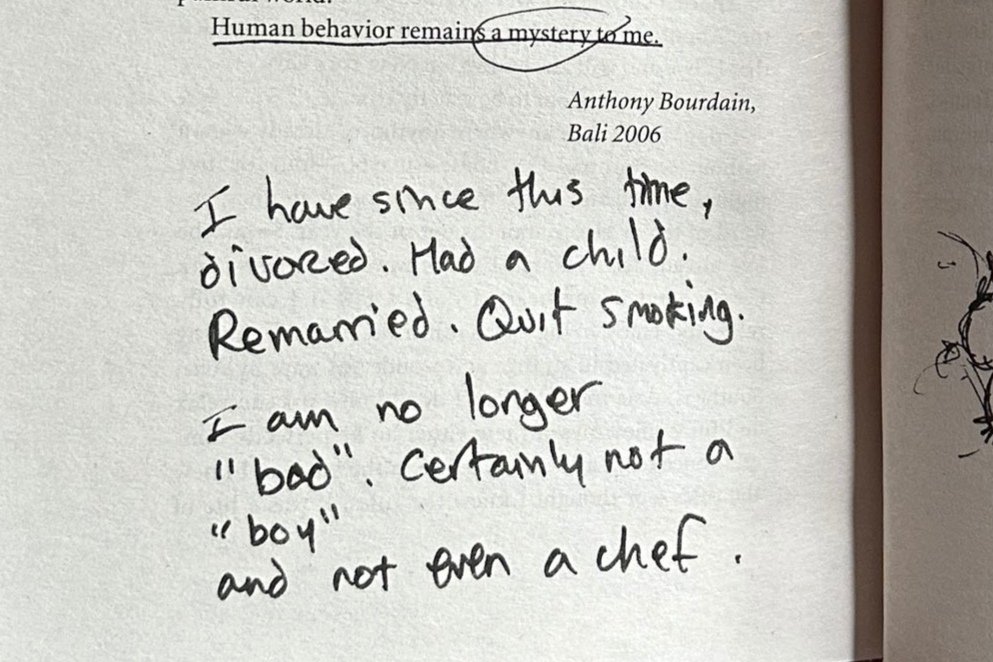 Human behavior remains a mystery to me.
Anthony Bourdain,
Bali 2006
I have since this time,
divorced. Had a child.
Remarried. Quit smoking.
I am no longer
"bad". Certainly not a
"boy"
and not even a chef.